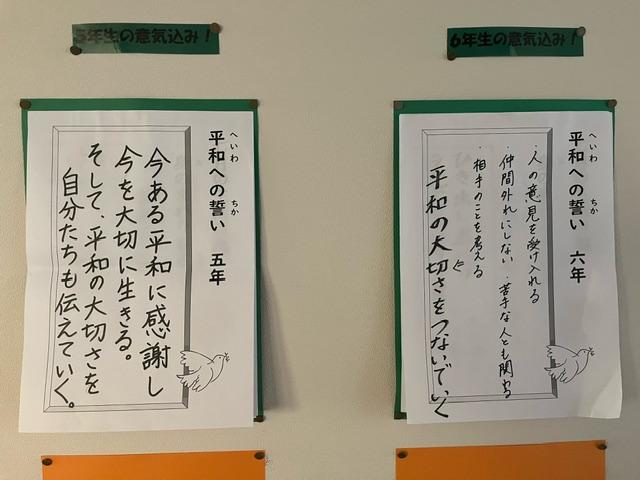 5年生の意気込み!
平和への誓い 五年
へいわ ちか
今ある平和に感謝し
今を大切に生きる。
そして、平和の大切さを
自分たちも伝えていく。
6年生の意気込み!
平和への誓い 六年
へいわ ちか
・人の意見を受け入れる
・仲間外れにしない・苦手な人とも関わる
・相手のことを考える
平和の大切さをつないでいく